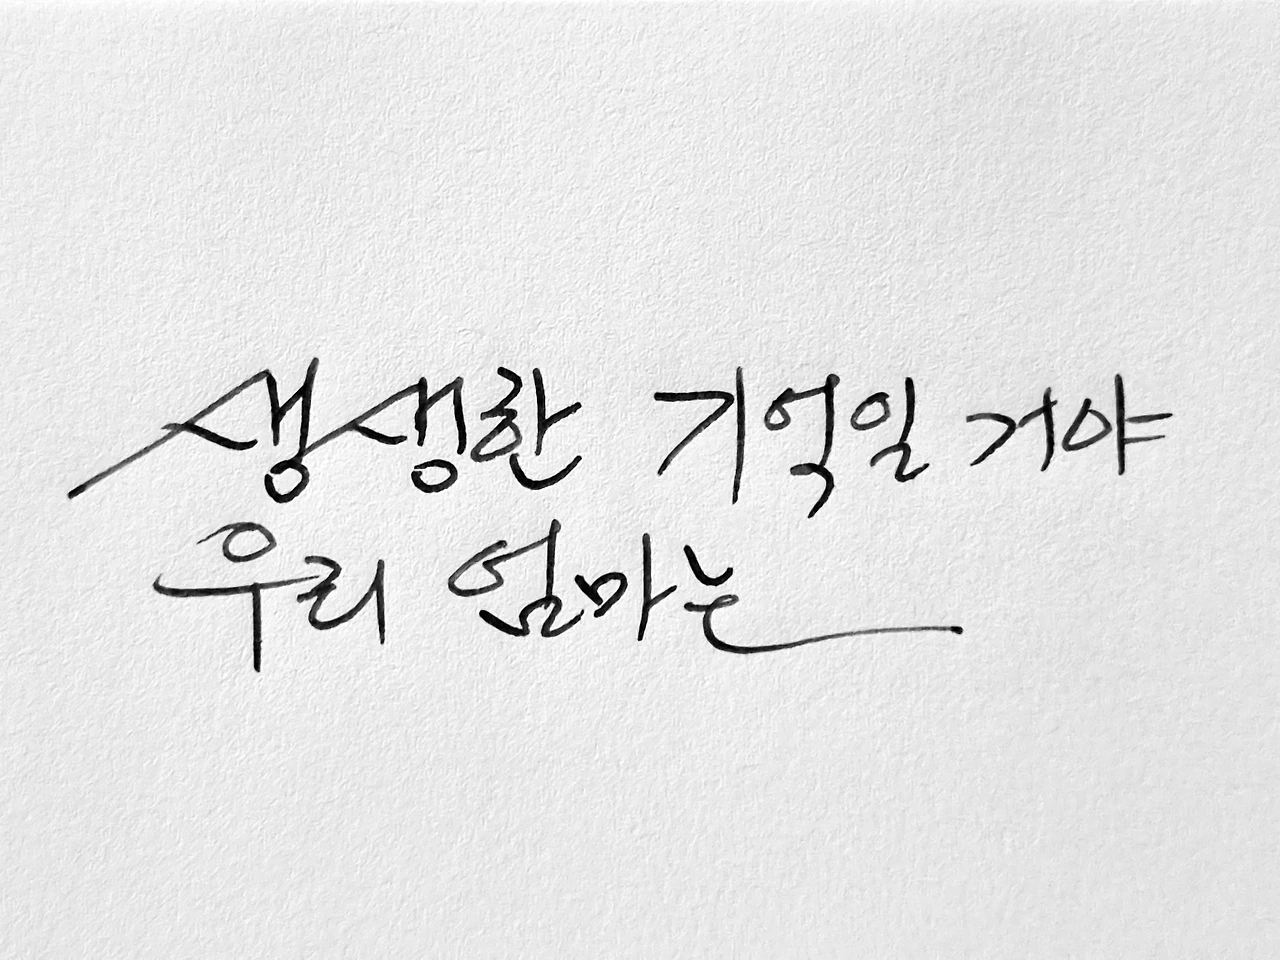 생생한 기억일 거야
우리 엄마는